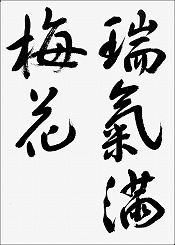 瑞氣満
梅花